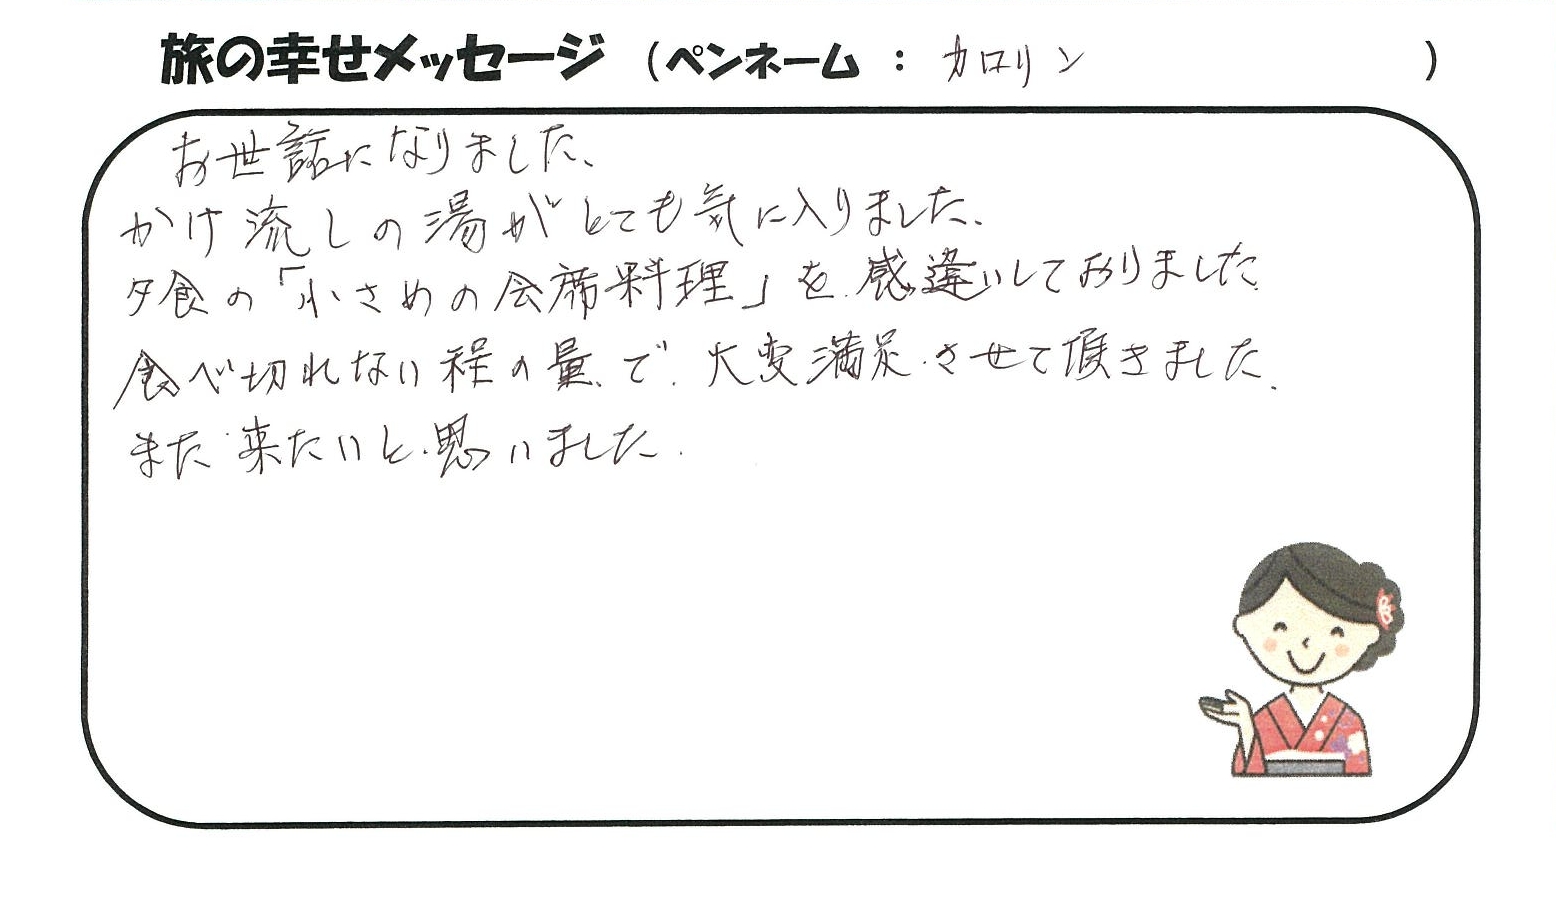 旅の幸せメッセージ （ペンネーム ： カロリン ）
お世話になりました、
かけ流しの湯がとても気に入りました、
夕食の「小さめの会席料理」を感違いしておりました
食べ切れない程の量で、大変満足させて頂きました、
また来たいと思いました.